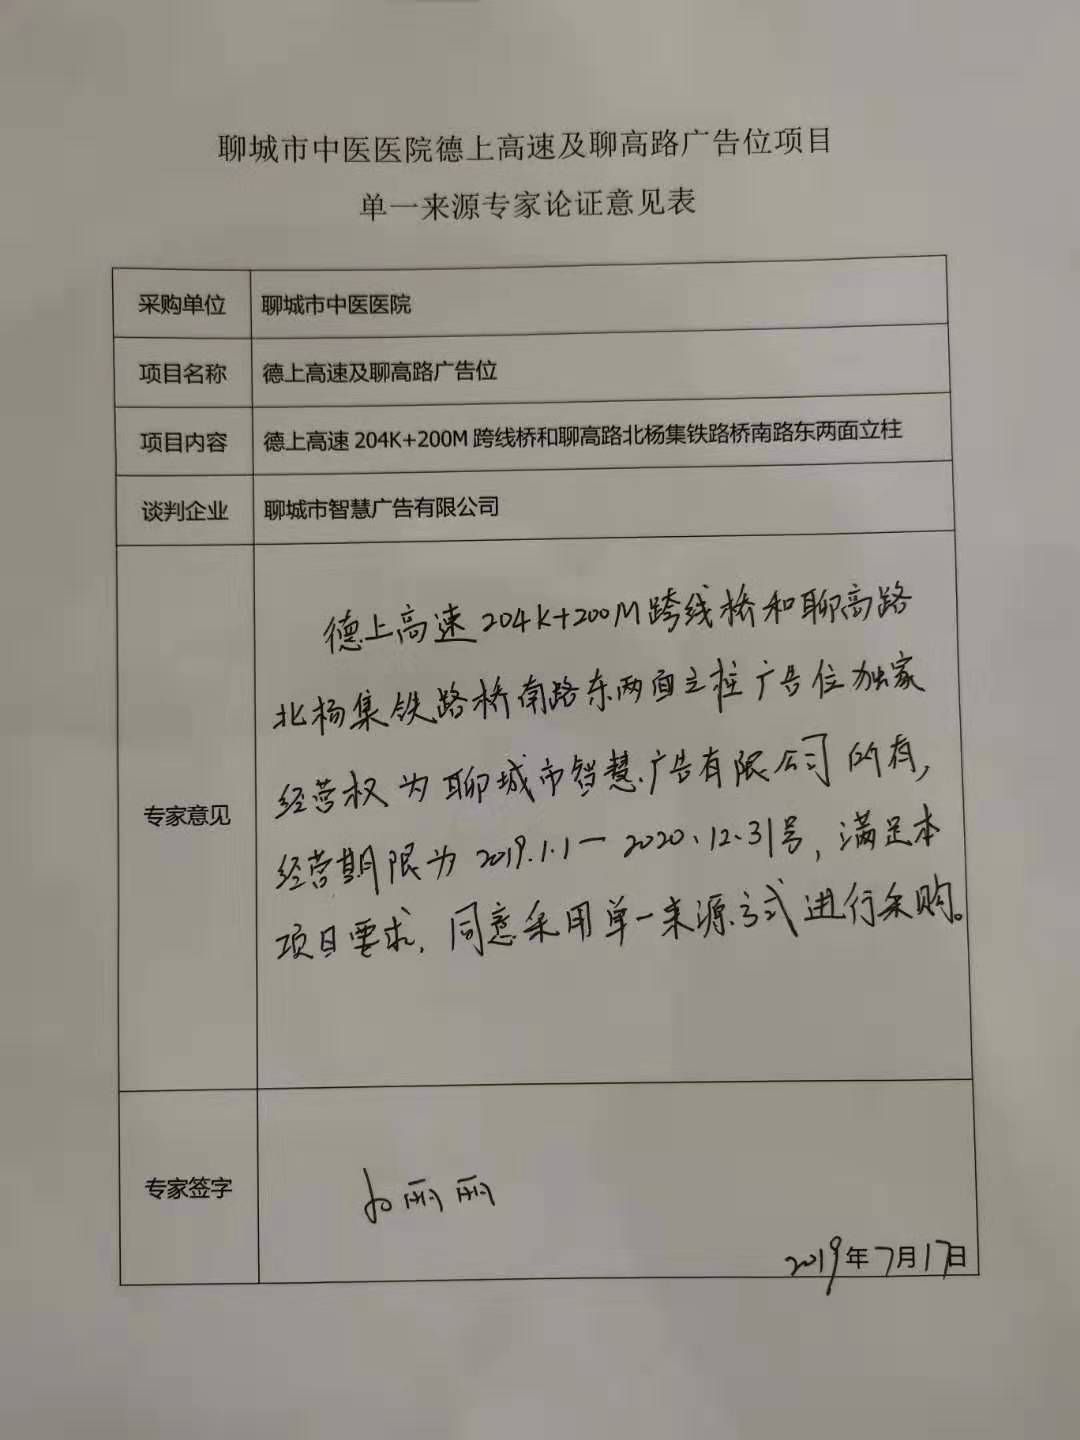 聊城市中医医院德上高速及聊高路广告位项目
单一来源专家论证意见表
采购单位 聊城市中医医院
项目名称 德上高速及聊高路广告位
项目内容 德上高速 204K+200M 跨线桥和聊高路北杨集铁路桥南路东两面立柱
谈判企业 聊城市智慧广告有限公司
专家意见
德上高速204K+200M跨线桥和聊高路
北杨集铁路桥南路东两面立柱广告位独家
经营权为聊城市智慧广告有限公司所有,
经营期限为2019.1.1一2020、12、31号,满足本
项目要求,同意采用单一来源方式进行采购。
专家签字 丽丽
2019年7月17日